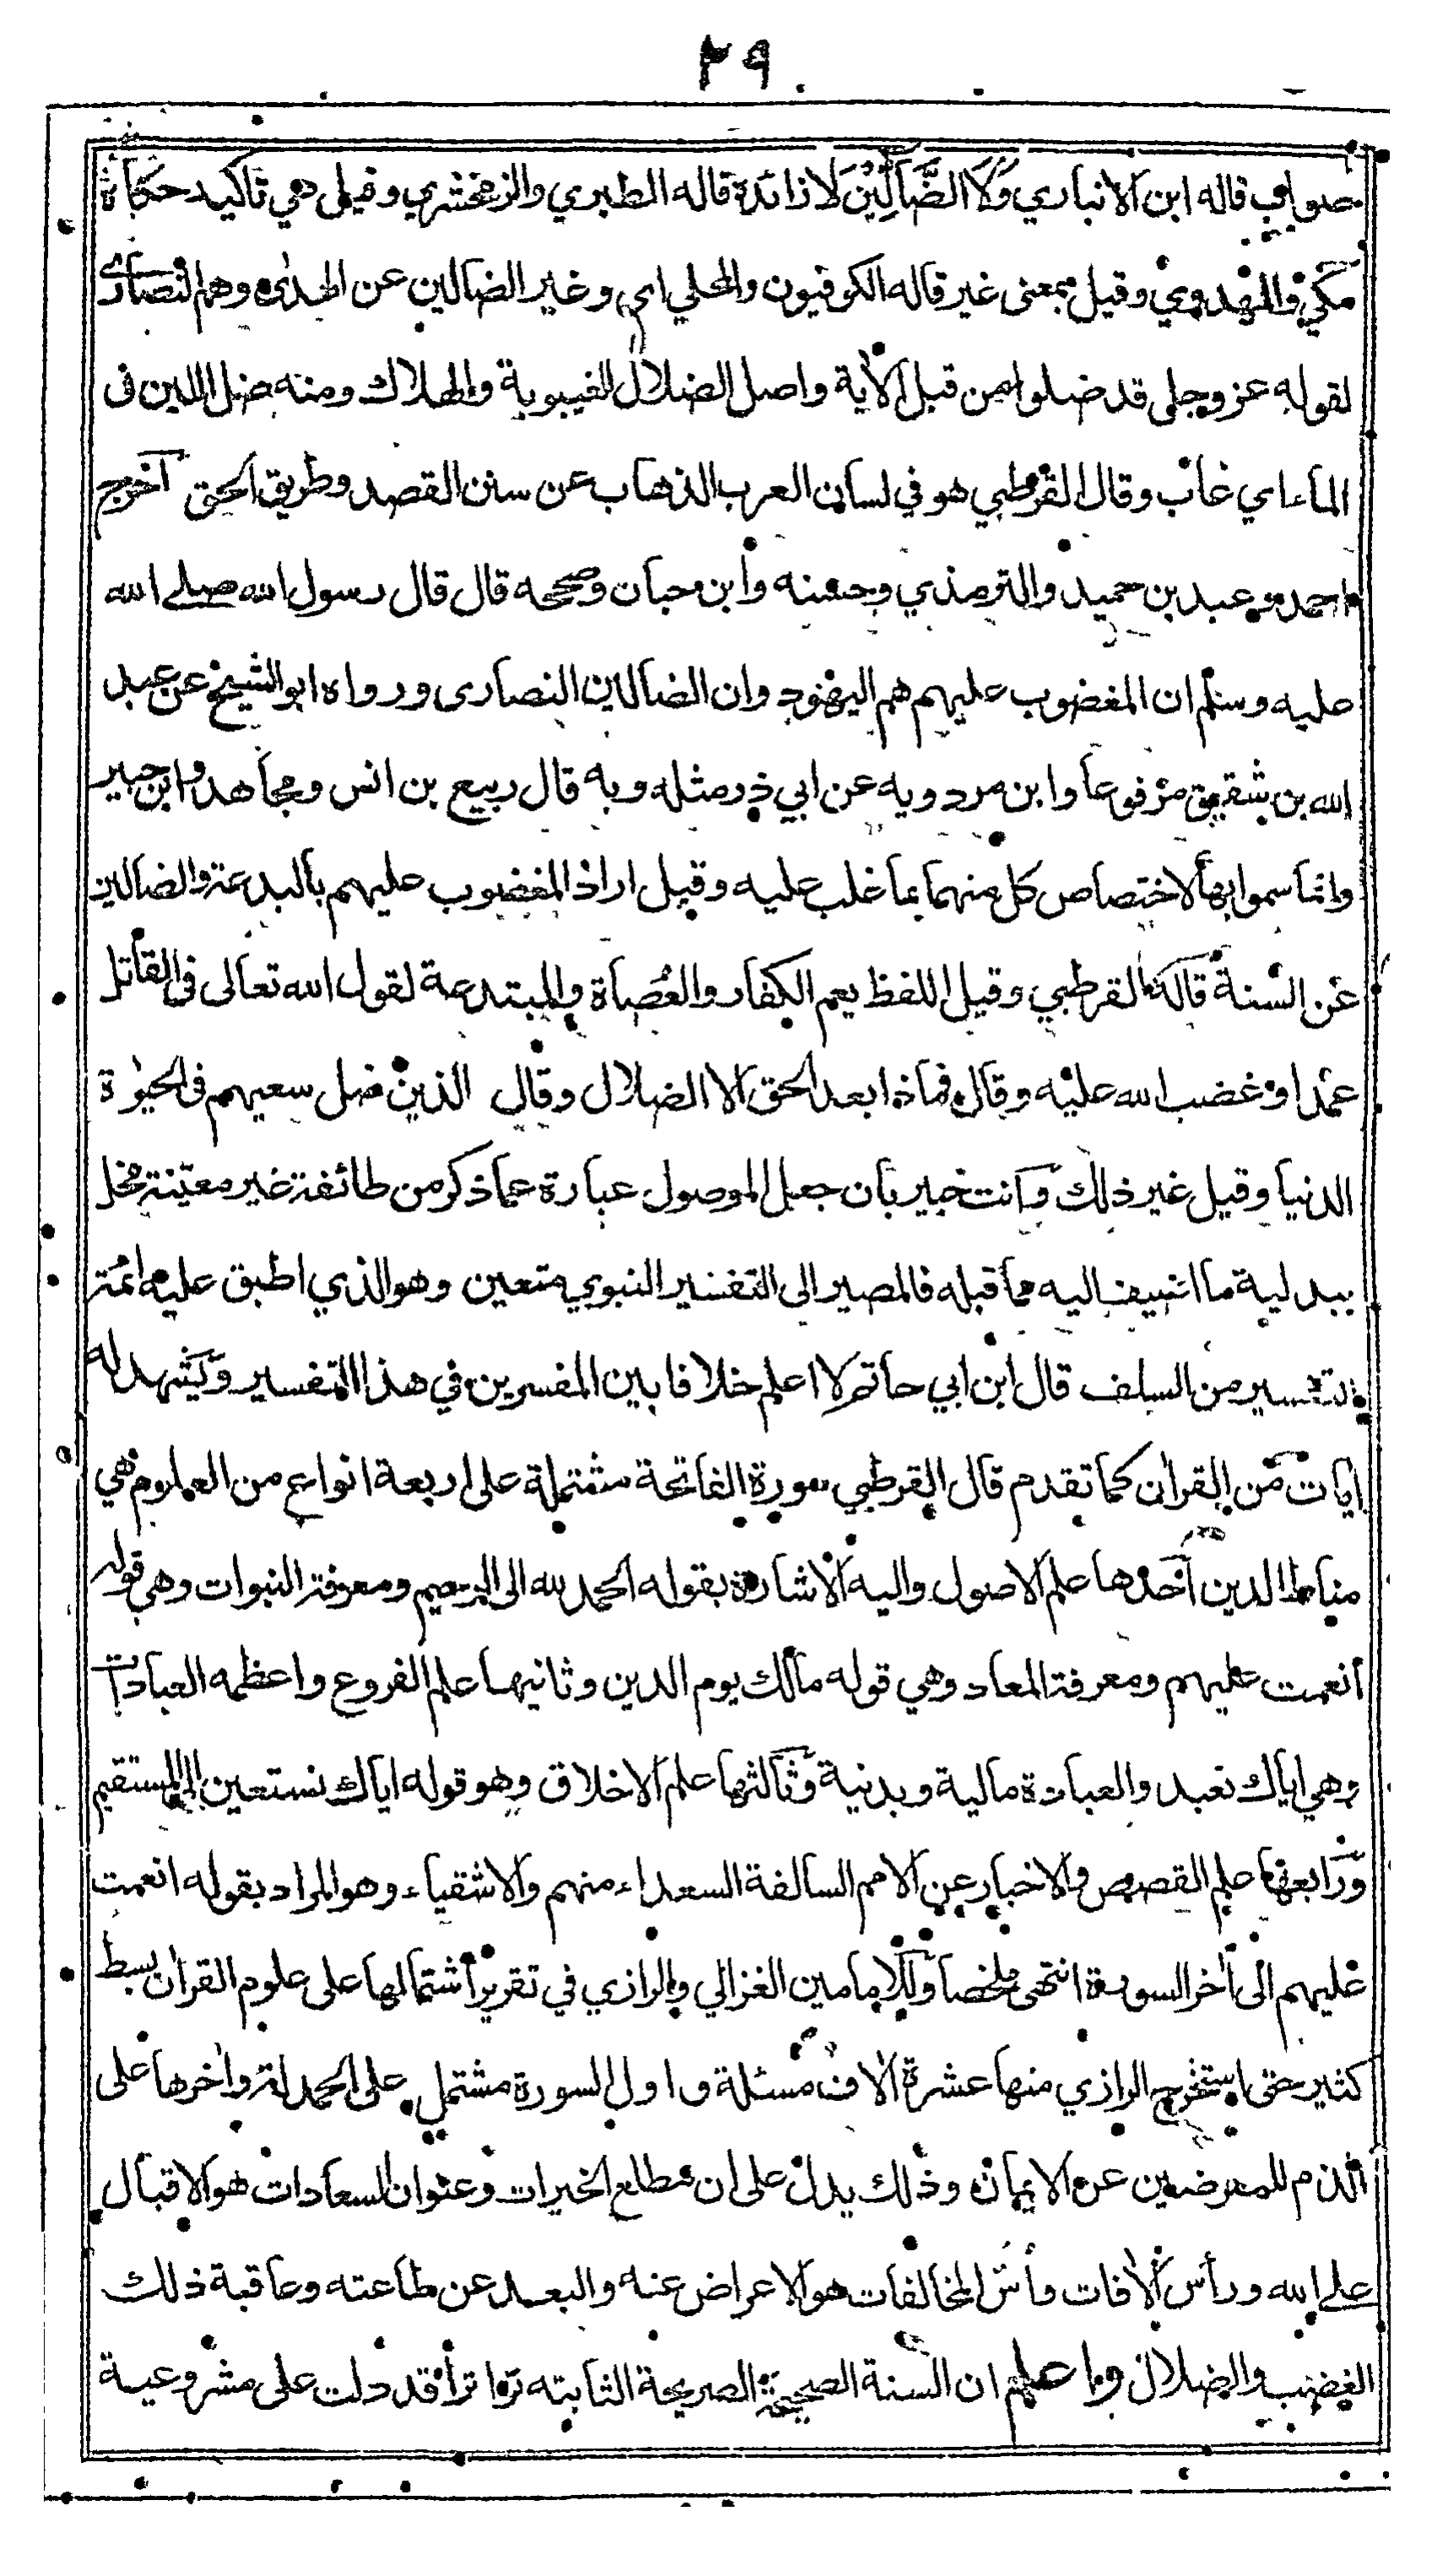 ٢٩
صواب قاله ابن الانباري وَلَا الضَّآلِّيْنَ لا زائدة قاله الطبري والزمخشري وقيل هي تاكيد حكاه
مكي والمهدوي وقيل بمعنى غير قاله الكوفيون والمحلي اي وغير الضالين عن الهدى وهم النصارى
لقوله عز وجل قد ضلوا من قبل الآية واصل الضلال الغيبوبة والهلاك ومنه ضل اللبن في
الماء اي غاب وقال القرطبي هو في لسان العرب الذهاب عن سنن القصد وطريق الحق اخرج
احمد وعبد بن حميد والترمذي وحسنه وابن حبان وصححه قال قال رسول الله صلى الله
عليه وسلم ان المغضوب عليهم هم اليهود وان الضالين النصارى ورواه ابو الشيخ عن عبد
الله بن شقيق مرفوعا وابن مردويه عن ابي ذر مثله وبه قال ربيع بن انس ومجاهد وابن جبير
وانما سموا بها لاختصاص كل منهما بما غلب عليه وقيل اراد المغضوب عليهم بالبدعة والضالين
عن السنة قاله القرطبي وقيل اللفظ يعم الكفار والعُصاة والمبتدعة لقول الله تعالى في القاتل
عمدا وغضب الله عليه وقال فماذا بعد الحق الا الضلال وقال الذين ضل سعيهم في الحيوة
الدنيا وقيل غير ذلك وانت خبير بان جعل الموصول عبارة عما ذكر من طائفة غير معيّنة مخل
ببدلية ما اضيف اليه مما قبله فالمصير الى التفسير النبوي متعين وهو الذي اطبق عليه ائمة
التفسير من السلف قال ابن ابي حاتم لا اعلم خلافا بين المفسرين في هذا التفسير ويشهد له
ايات من القران كما تقدم قال القرطبي سورة الفاتحة مشتملة على اربعة انواع من العلوم هي
مناط الدين احدها علم الاصول واليه الاشارة بقوله الحمد لله الى الرحيم ومعرفة النبوات وهي قوله
أنعمت عليهم ومعرفة المعاد وهي قوله مالك يوم الدين وثانيها علم الفروع واعظمه العبادات
وهي اياك نعبد والعبادة مالية وبدنية وثالثها علم الاخلاق وهو قوله اياك نستعين الى المستقيم
ورابعها علم القصص والاخبار عن الامم السالفة السعداء منهم والاشقياء وهو المراد بقوله انعمت
عليهم الى اخر السورة انتهى ملخصا وللامامين الغزالي والرازي في تقرير اشتمالها على علوم القران بسط
كثير حتى استخرج الرازي منها عشرة الاف مسئلة واول السورة مشتمل على الحمد لله واخرها على
الذم للمعرضين عن الايمان وذلك يدل على ان مطلع الخيرات وعنوان السعادات هو الاقبال
على الله ورأس الافات وأس المخالفات هو الاعراض عنه والبعد عن طاعته وعاقبة ذلك
الغضب والضلال واعلم ان السنة الصحيحة الصريحة الثابته تواترا قد دلت على مشروعية